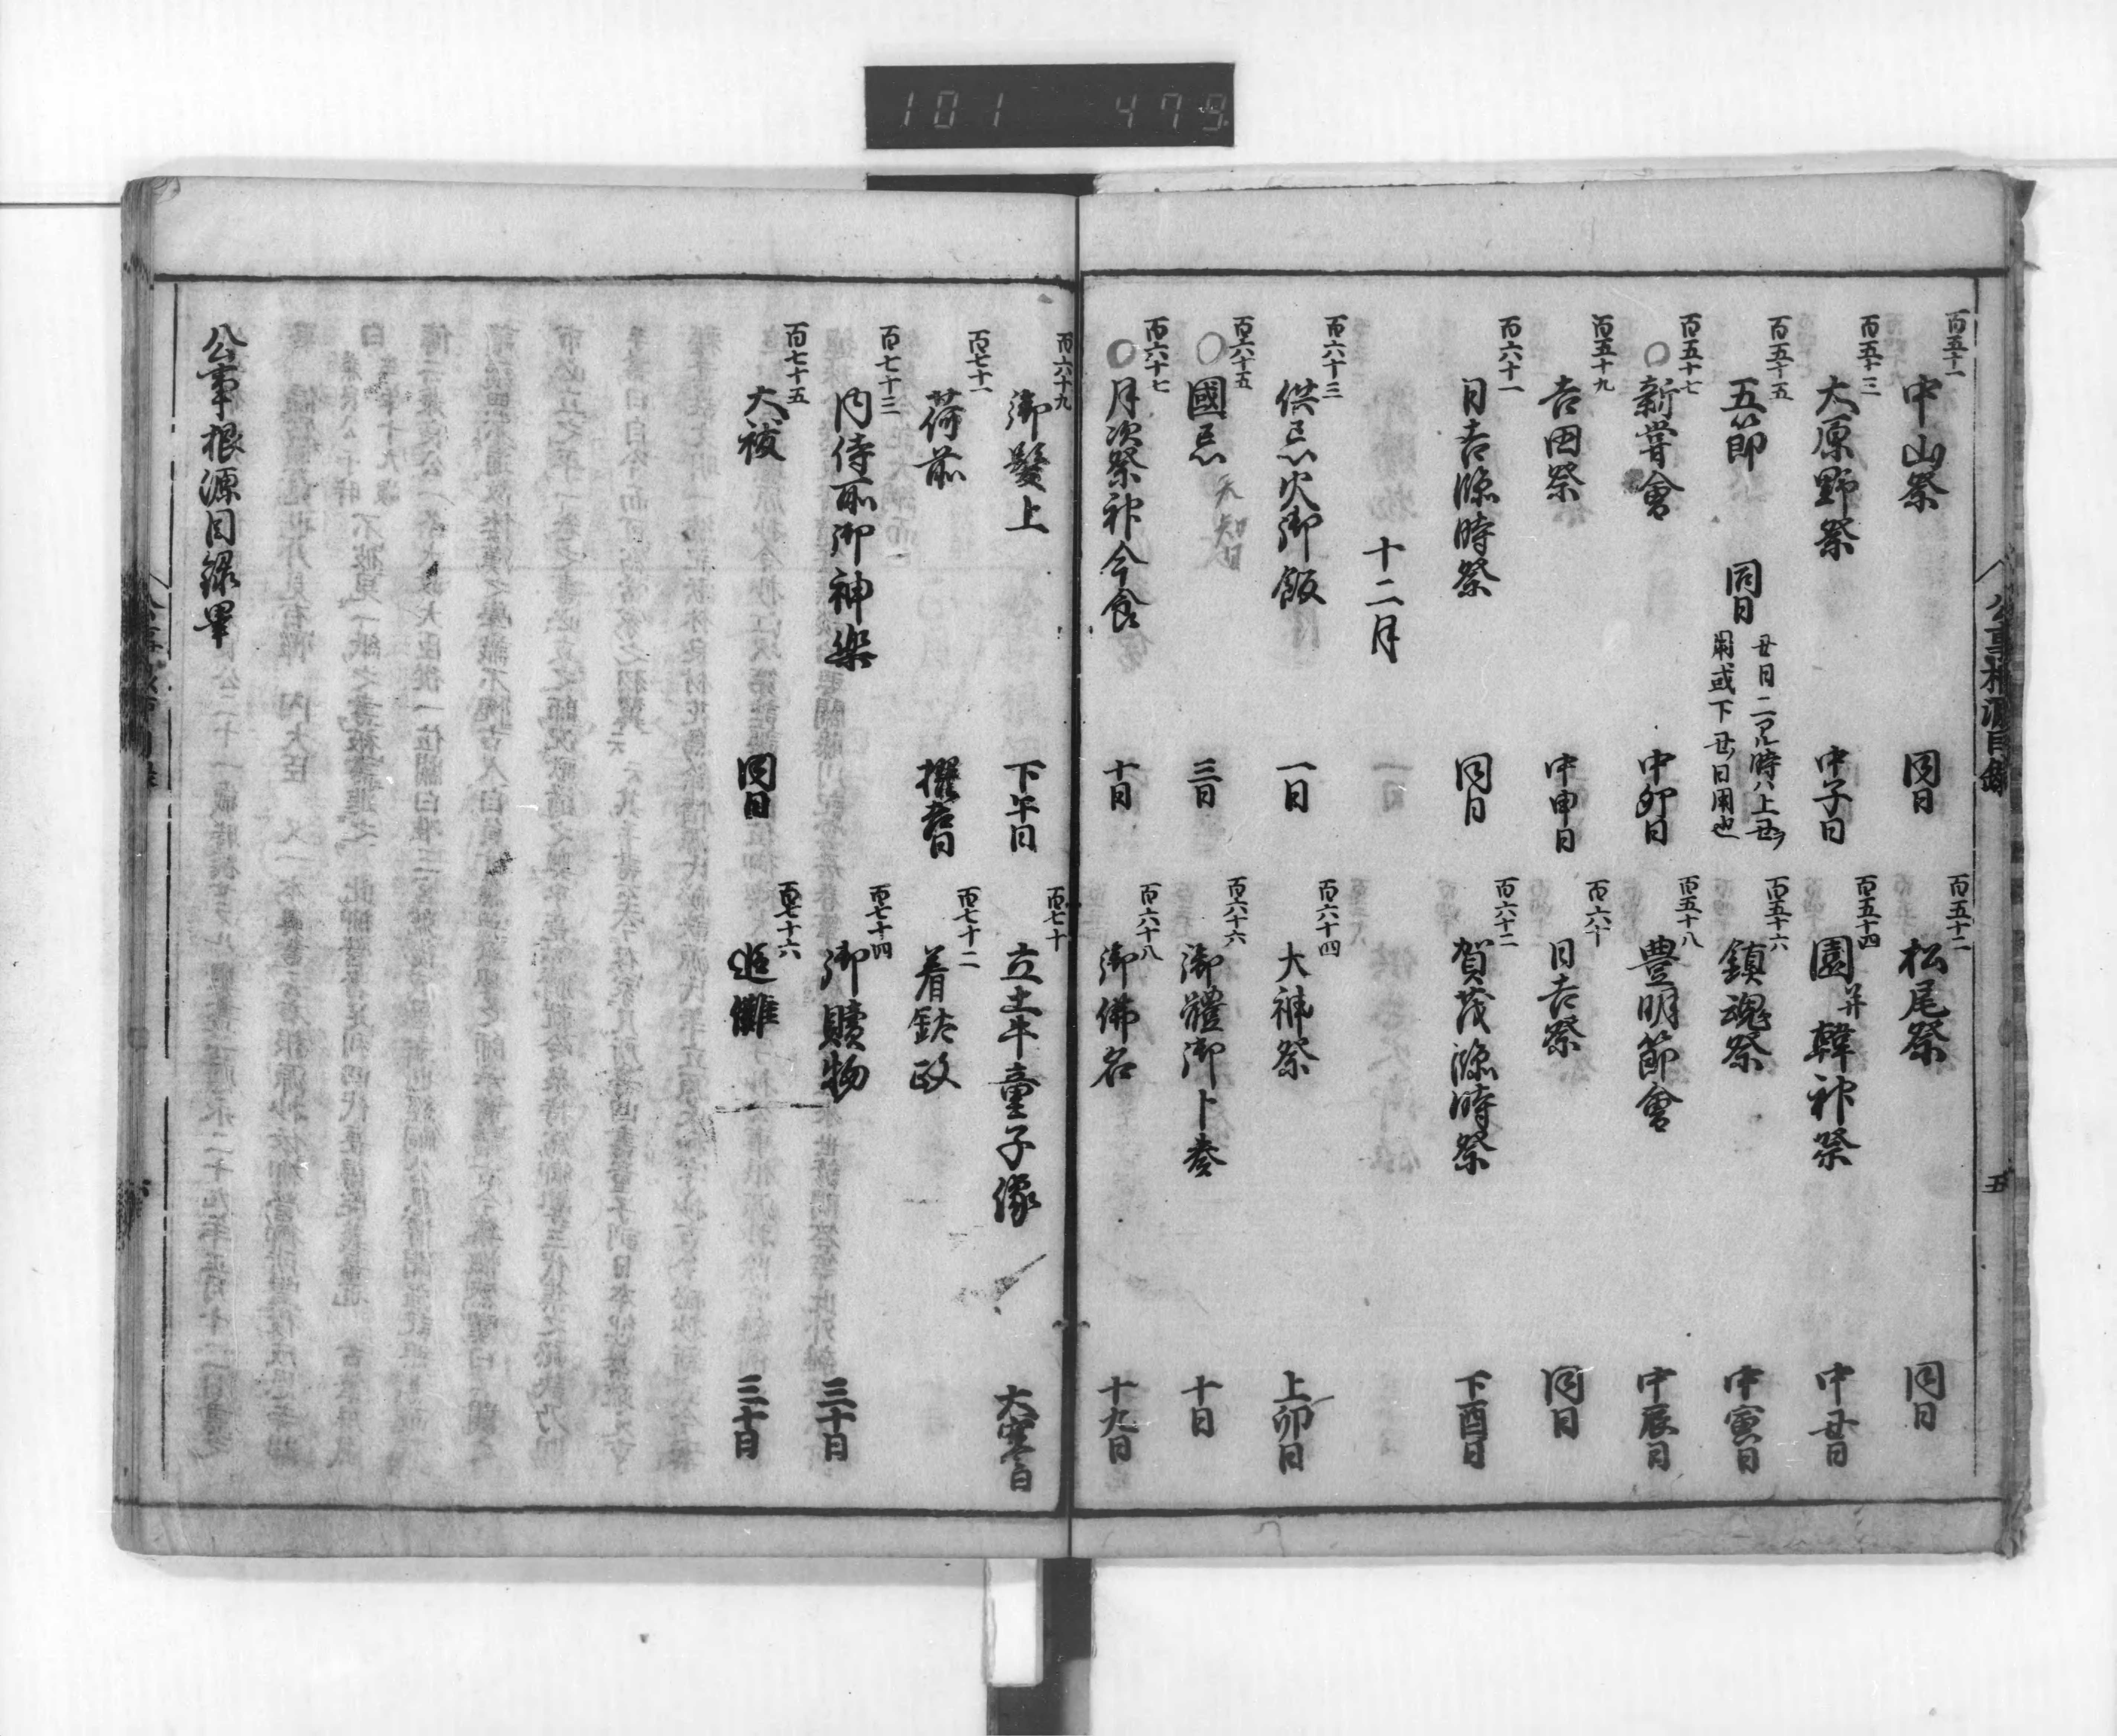 101 479
百五十一 中山祭 同日 百五十二 松尾祭 同日
百五十三 大原野祭 中子日 百五十四 園并韓神祭 中丑日
百五十五 五節 同日 丑日二アル時ハ上丑ヲ用或下丑日用也 百五十六 鎮魂祭 中寅日
百五十七 ○新嘗會 中卯日 百五十八 豊明節會 中辰日
百五十九 吉田祭 中申日 百六十 日吉祭 同日
百六十一 日吉臨時祭 同日 百六十二 賀茂臨時祭 下酉日
十二月
百六十三 供忌火御飯 一日 百六十四 大神祭 上卯日
百六十五 ○國忌 天智 三日 百六十六 御體御卜奏 十日
百六十七 ○月次祭神今食 十日 百六十八 御佛名 十九日
公事根源目録 五
百六十九 御髪上 下午日 百七十 立土牛童子像 大寒日
百七十一 荷前 擇吉日 百七十二 着鈦政
百七十三 内侍所御神楽 百七十四 御贖物 三十日
百七十五 大祓 同日 百七十六 追儺 三十日
公事根源目録畢